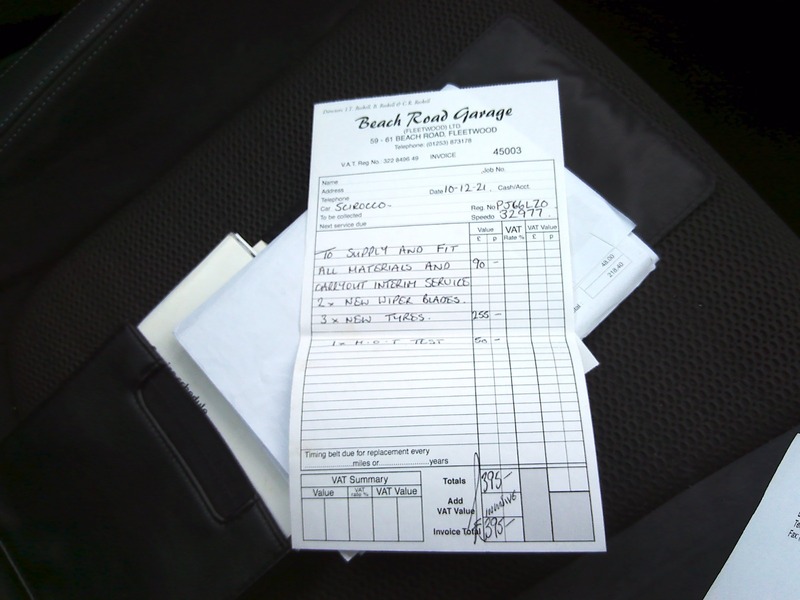 Beach Road Garage
(FLEETWOOD) LTD
59 - 61 BEACH ROAD, FLEETWOOD
Telephone: (01253) 873178
V.A.T. Reg No. 322 8496 49 INVOICE 45003
Name Job No.
Address Date 10-12-21. Cash/Acct.
Telephone
Car SCIROCCO- Reg. No PJ66LZO
To be collected Speedo 32977
Next service due
Value VAT VAT Value
£ p Rate % £ p
TO SUPPLY AND FIT
ALL MATERIALS AND 90 -
CARRYOUT INTERIM SERVICE
2 x NEW WIPER BLADES.
3 x NEW TYRES. 255 -
1 x M.O.T TEST 50 -
Timing belt due for replacement every
miles or years
VAT Summary
Value VAT rate % VAT Value
Totals 395 -
Add VAT Value inclusive
Invoice Total £395 -
48.00
218.40
schedule